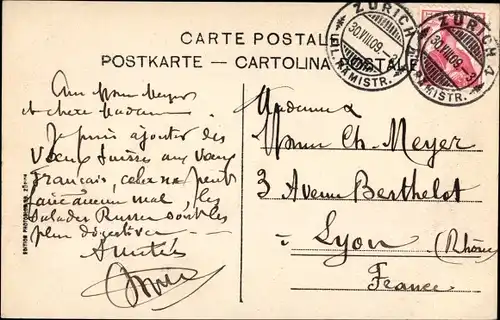 CARTE POSTALE
POSTKARTE — CARTOLINA POSTALE
ZÜRICH 4
30.VIII.09.
RÄMISTR.
ZÜRICH 4
30.VIII.09.
RÄMISTR.
Mon Meyer
et chère Madame
Je puis ajouter des
Vœux Suisse aux Vœux
Français, cela ne peut
faire aucun mal, les
Salades Russes sont les
plus digestives
Amitiés
Madame &
Monsr Ch. Meyer
3 Avenue Berthelot
Lyon (Rhône)
France